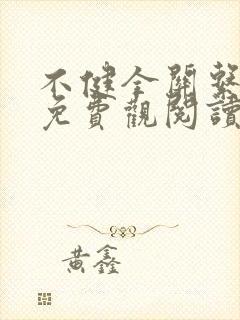 不健全關繫
免費觀閱讀
黃鑫